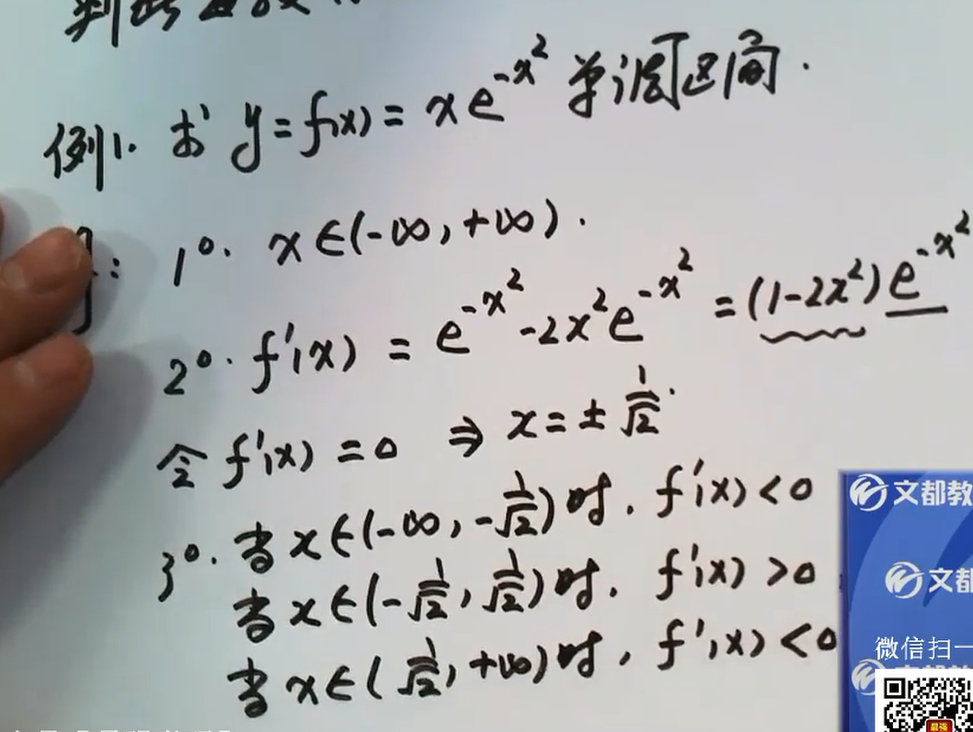 例1. 求 y=f(x)=xe^{-x²} 单调区间.
: 1°. x∈(-∞,+∞).
2°. f'(x) = e^{-x²}-2x²e^{-x²} =(1-2x²)e^{-x²}
令 f'(x)=0 ⇒ x=±1/√2.
3°. 当 x∈(-∞,-1/√2)时, f'(x)<0
当 x∈(-1/√2,1/√2)时, f'(x)>0
当 x∈(1/√2,+∞)时, f'(x)<0
文都教
文都
微信扫一